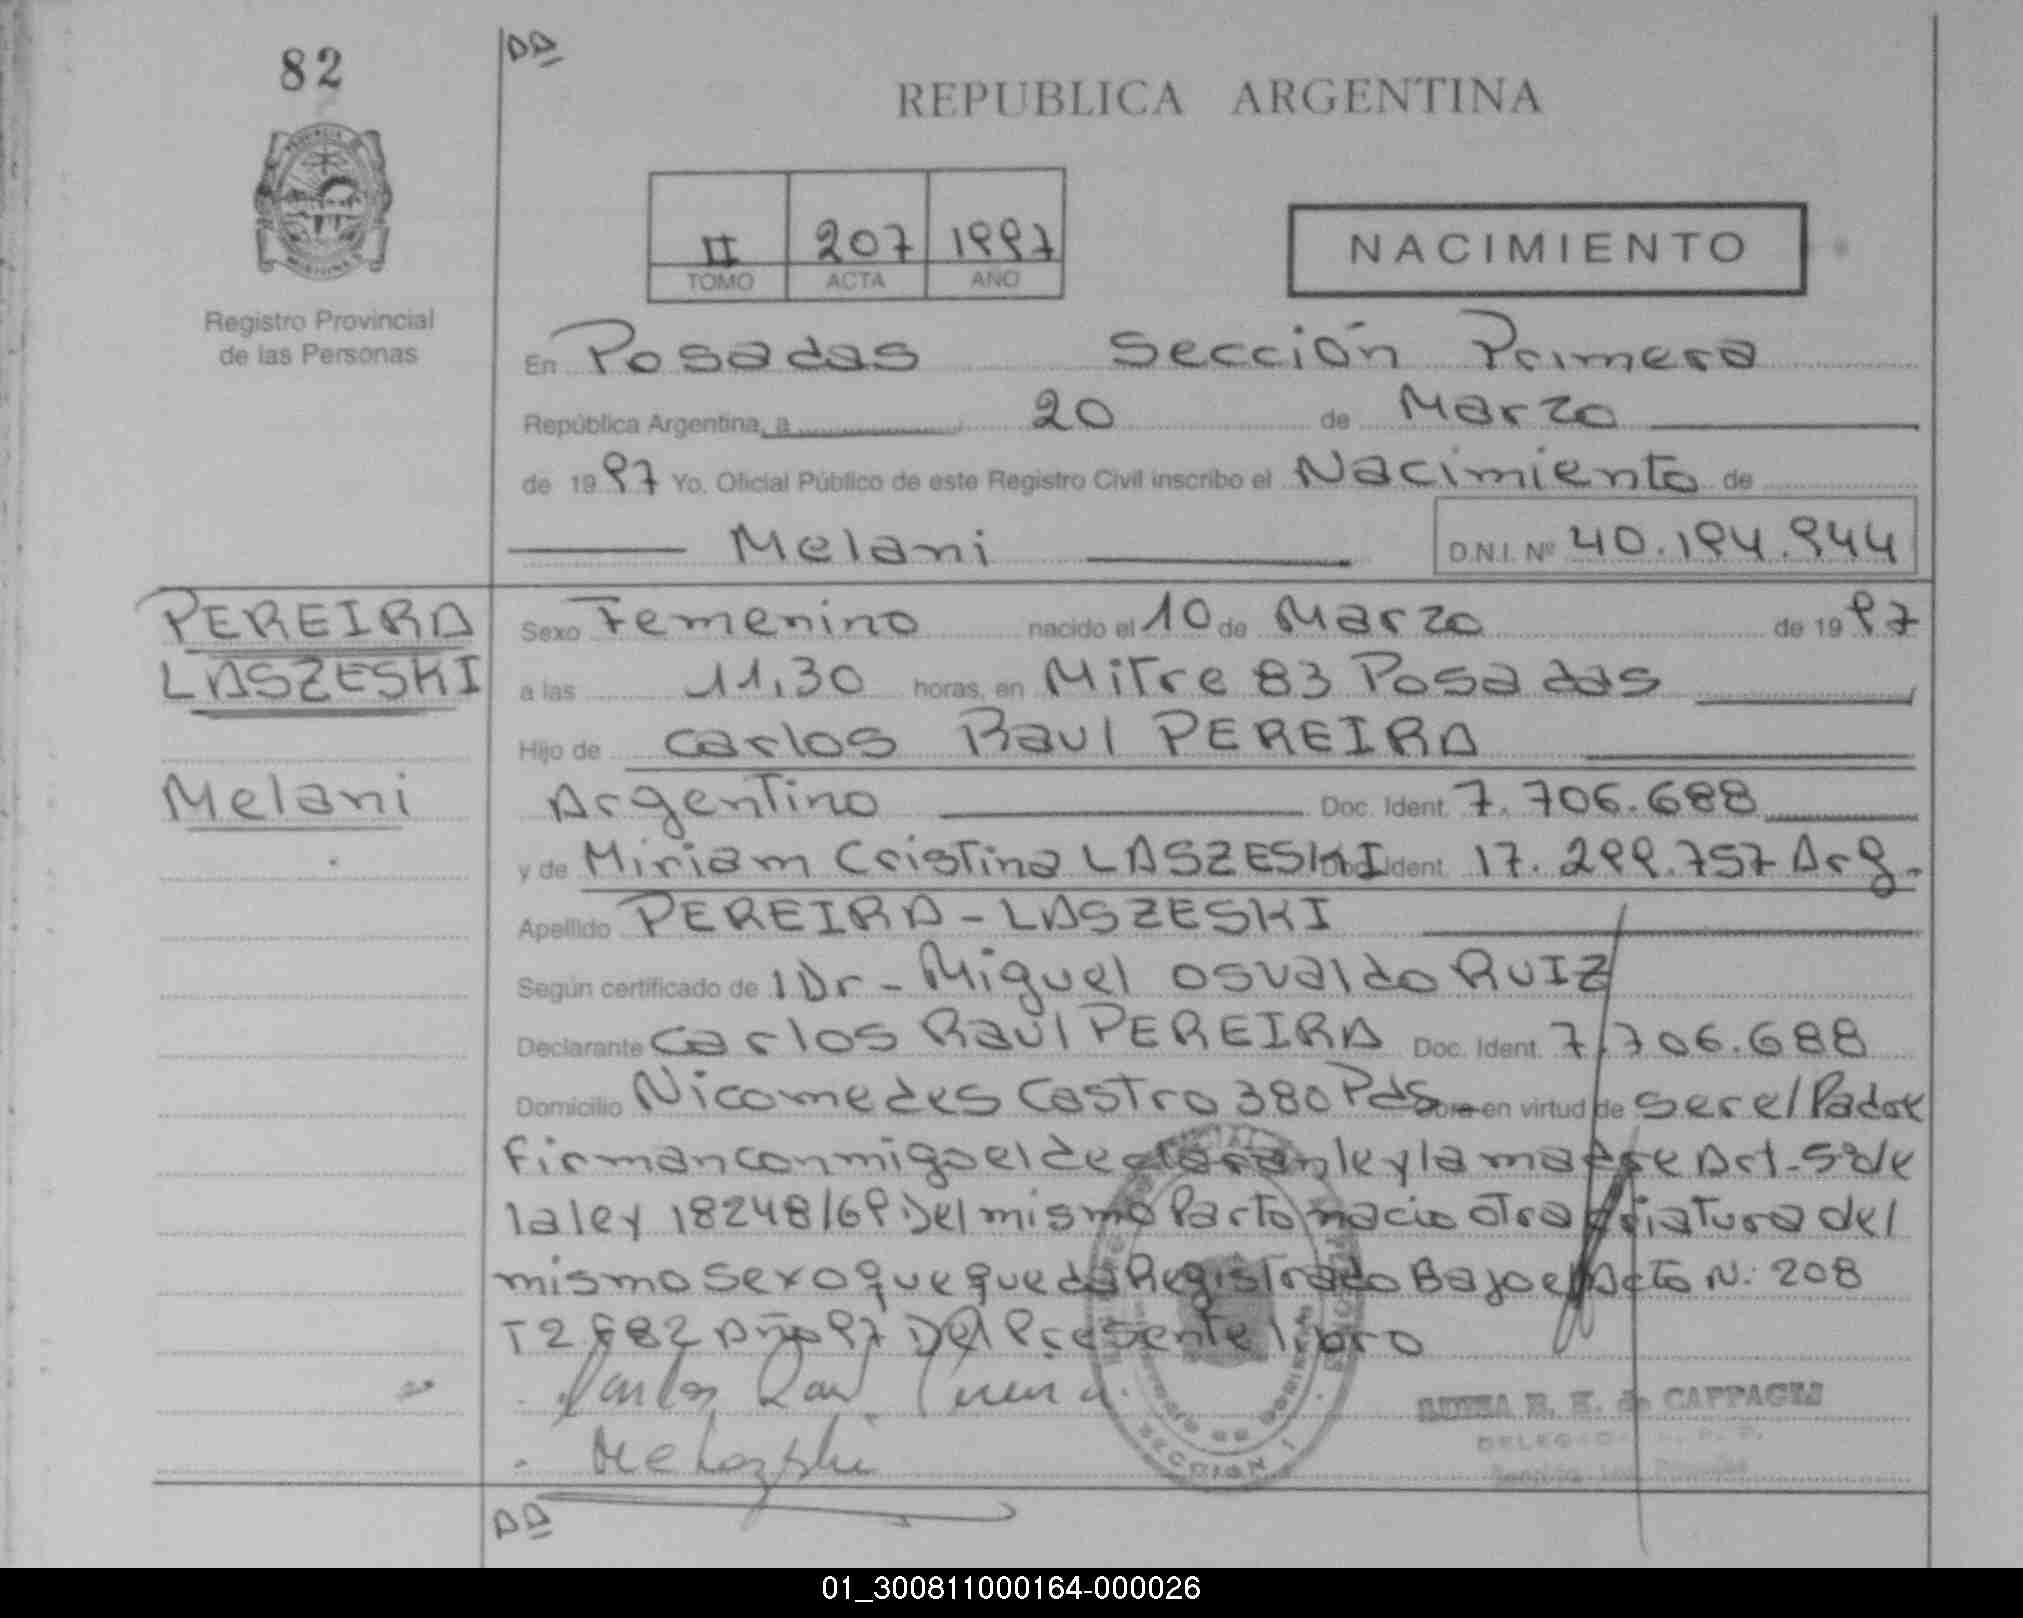 82
DA
REPUBLICA ARGENTINA
II 207 1997
TOMO ACTA AÑO
NACIMIENTO
Registro Provincial
de las Personas
En Posadas Sección Primera
República Argentina, a 20 de Marzo
de 1997 Yo. Oficial Público de este Registro Civil inscribo el Nacimiento de
Melani D.N.I. Nº 40.194.944
PEREIRA
LASZESKI
Melani
Sexo Femenino nacido el 10 de Marzo de 1997
a las 11,30 horas, en Mitre 83 Posadas
Hijo de Carlos Raul PEREIRA
Argentino Doc. Ident. 7.706.688
y de Miriam Cristina LASZESKI Doc. Ident. 17.299.757 Arg.
Apellido PEREIRA-LASZESKI
Según certificado de 1 Dr - Miguel Osvaldo RUIZ
Declarante Carlos Raul PEREIRA Doc. Ident. 7.706.688
Domicilio Nicomedes Castro 380 Pds en virtud de ser el Padre
firman conmigo el declarante y la madre Art. 5º de
la ley 18248/69 Del mismo Parto nacio otra criatura del
mismo sexo que queda Registrado Bajo el Acta N: 208
T2 F82 Año 97 Del Presente libro
Carlos Raul
SECCION I
R. E. de
DELEG
DA
01_300811000164-000026